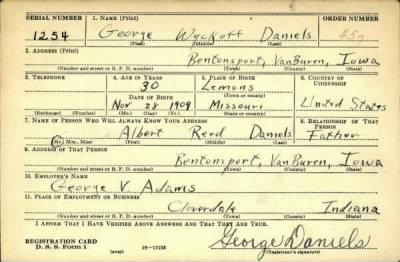 SERIAL NUMBER 1. NAME (Print) ORDER NUMBER
1254 George Wyckoff Daniels
(First) (Middle) (Last)
2. ADDRESS (Print)
Bentonsport, VanBuren, Iowa
(Number and street or R. F. D. number) (Town) (County) (State)
3. TELEPHONE 4. AGE IN YEARS 5. PLACE OF BIRTH 6. COUNTRY OF CITIZENSHIP
30 Lemons
(Town or county)
DATE OF BIRTH
Nov 28 1909 Missouri United States
(Exchange) (Number) (Mo.) (Day) (Yr.) (State or country)
7. NAME OF PERSON WHO WILL ALWAYS KNOW YOUR ADDRESS 8. RELATIONSHIP OF THAT PERSON
Albert Reed Daniels Father
(Mr., Mrs., Miss) (First) (Middle) (Last)
9. ADDRESS OF THAT PERSON
Bentonsport, VanBuren, Iowa
(Number and street or R. F. D. number) (Town) (County) (State)
10. EMPLOYER'S NAME
George V. Adams
11. PLACE OF EMPLOYMENT OR BUSINESS
Cloverdale Indiana
(Number and street or R. F. D. number) (Town) (County) (State)
I AFFIRM THAT I HAVE VERIFIED ABOVE ANSWERS AND THAT THEY ARE TRUE.
George Daniels
REGISTRATION CARD
D. S. S. Form 1 (over) 16—17105 (Registrant's signature)